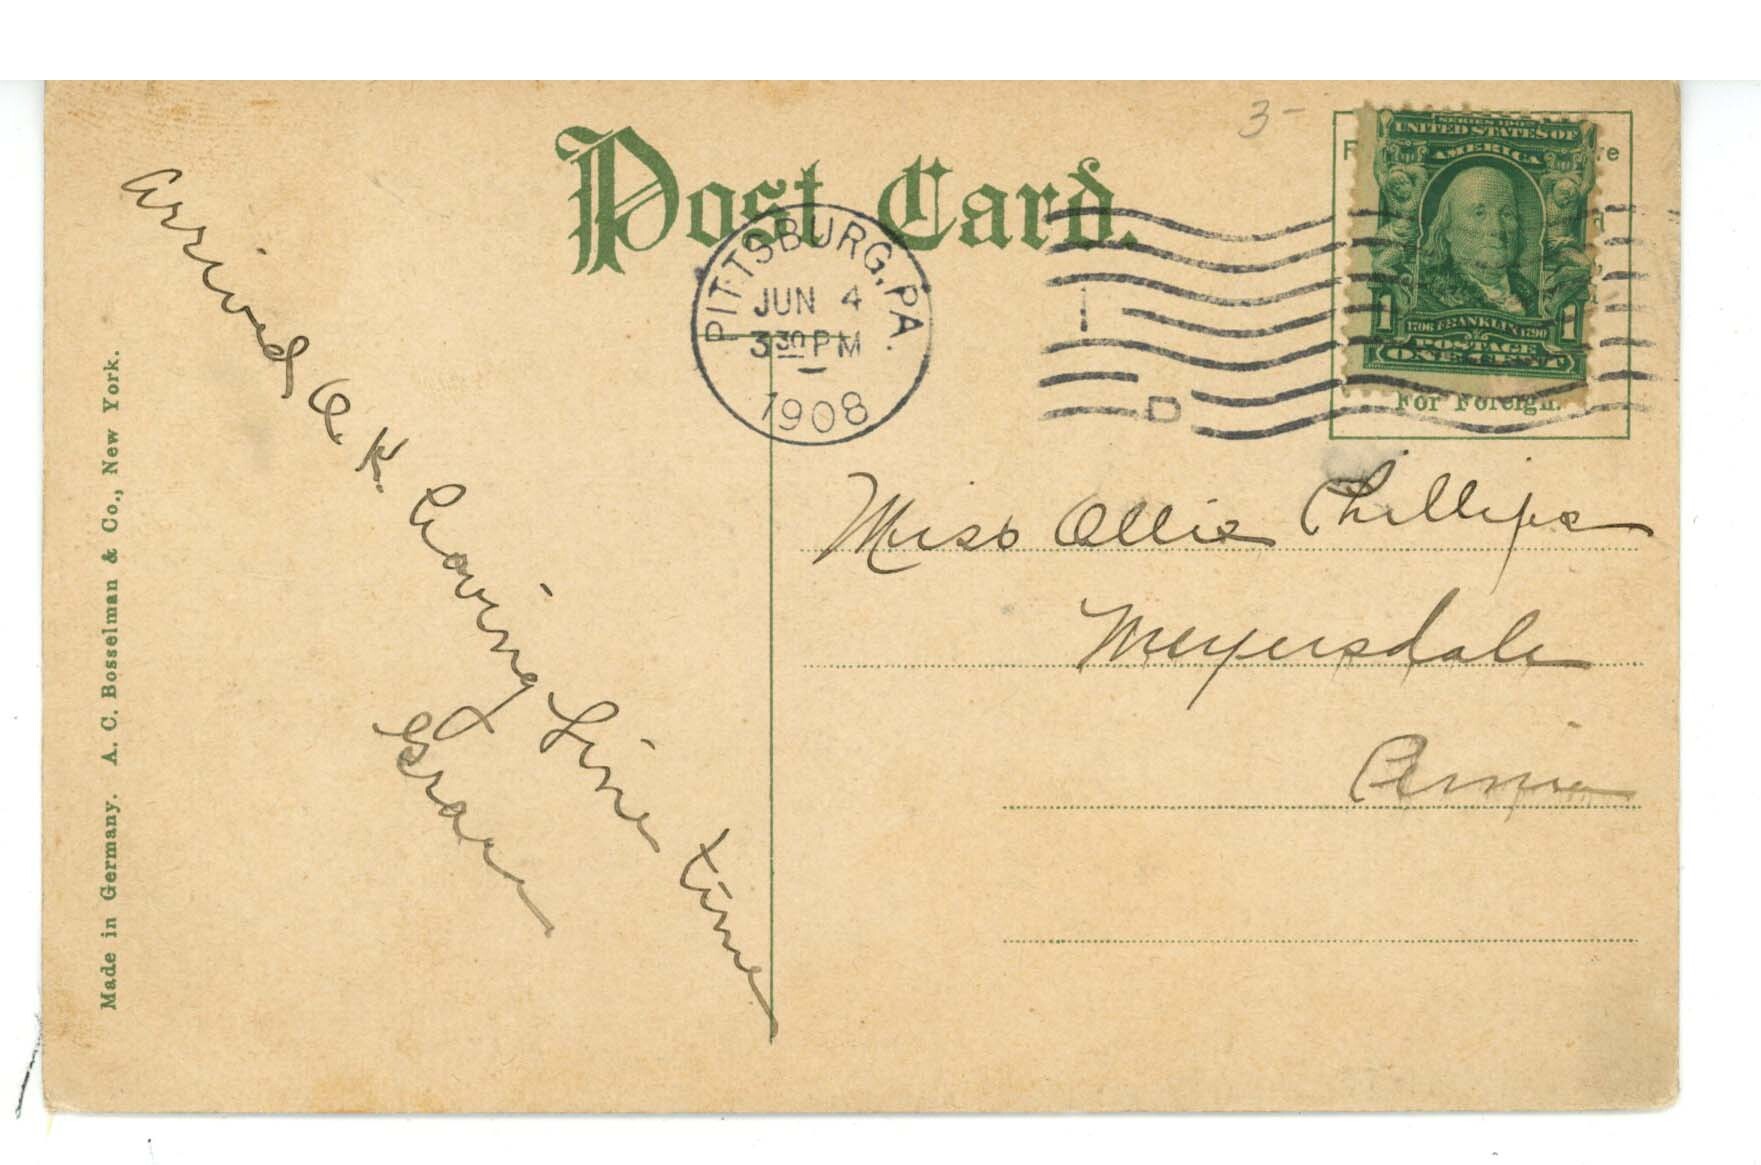 Post Card.
3-
PITTSBURG, PA.
JUN 4
3 30 PM
1908
1
D
SERIES 1902
UNITED STATES OF
AMERICA
1706 FRANKLIN 1790
1 1
POSTAGE
ONE CENT
For Foreign.
Arrived O.K. Having Fine time
Grace
Miss Ollie Phillips
Meyersdale
Penna
Made in Germany. A. C. Bosselman & Co., New York.